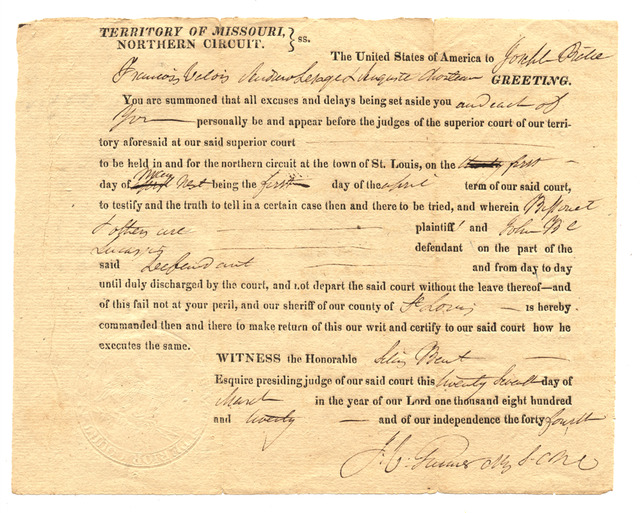 TERRITORY OF MISSOURI,
NORTHERN CIRCUIT. } ss.
The United States of America to Joseph
Francois Auguste GREETING.
You are summoned that all excuses and delays being set aside you and each of
You personally be and appear before the judges of the superior court of our terri-
tory aforesaid at our said superior court
to be held in and for the northern circuit at the town of St. Louis, on the first
day of May Next being the first day of the april term of our said court,
to testify and the truth to tell in a certain case then and there to be tried, and wherein
& others are plaintiff and John B C
Lucas is defendant on the part of the
said Defendant and from day to day
until duly discharged by the court, and not depart the said court without the leave thereof—and
of this fail not at your peril, and our sheriff of our county of St Louis is hereby
commanded then and there to make return of this our writ and certify to our said court how he
executes the same.
WITNESS the Honorable Silas Bent
Esquire presiding judge of our said court this twenty seventh day of
March in the year of our Lord one thousand eight hundred
and twenty and of our independence the forty fourth